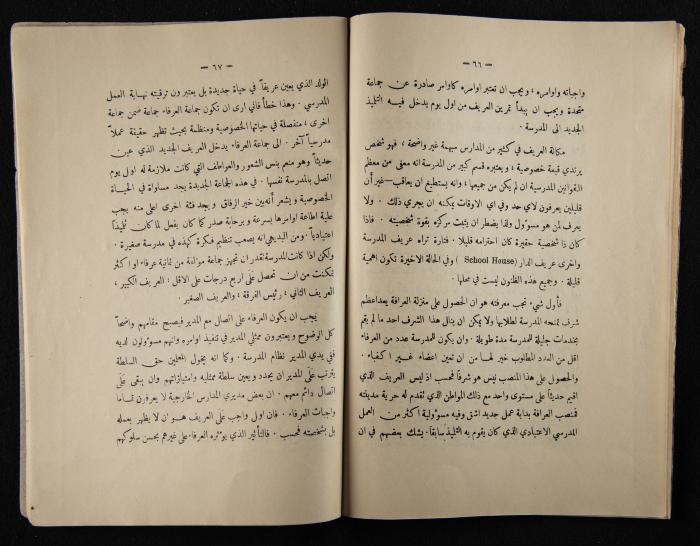 — ٦٦ —
واجباته واوامره ، ويجب ان تعتبر اوامره كاوامر صادرة عن جماعة
متحدة ويجب ان يبدأ تمرين العريف من اول يوم يدخل فيه التلميذ
الجديد الى المدرسة .
مكانة العريف في كثير من المدارس مبهمة غير واضحة ، فهو شخص
يرتدي قبعة خصوصية ، ويعتبره قسم كبير من المدرسة انه معفى من معظم
القوانين المدرسية ان لم يكن من جميعها ، وانه يستطيع ان يعاقب – غير أن
قليلين يعرفون لاي حد وفي اي الاوقات يمكنه ان يجري ذلك . ولا
يعرف لمن هو مسؤول ولذا يضطر ان يثبت مركزه بقوة شخصيته . فاذا
كان ذا شخصية حقيرة كان احترامه قليلا . فتارة تراه عريف المدرسة
واخرى عريف الدار ( School House ) وفي الحالة الاخيرة تكون اهمية
قليلة . وجميع هذه الظنون ليست في محلها .
فأول شيء تجب معرفته هو ان الحصول على منزلة العرافة يعد اعظم
شرف تمنحه المدرسة لطلابها ولا يمكن ان ينال هذا الشرف احد ما لم يقم
بخدمات جليلة للمدرسة مدة طويلة . وان يكون للمدرسة عدد من العرفاء
اقل من العدد المطلوب خير لها من ان تعين اعضاء غير اكفاء .
والحصول على هذا المنصب ليس هو شرفاً فحسب اذ ليس العريف الذي
اقيم حديثاً على مستوى واحد مع ذلك المواطن الذي تقدم له حرية مدينته
فمنصب العرافة بداية عمل جديد اشق وفيه مسؤولية اكثر من العمل
المدرسي الاعتيادي الذي كان يقوم به التلميذ سابقاً . يشك بعضهم في ان
— ٦٧ —
الولد الذي يعين عريفاً في حياة جديدة بل يعتبرون ترقيته نهاية العمل
المدرسي . وهذا خطأ فاني ارى ان تكون جماعة العرفاء جماعة ضمن جماعة
اخرى ، منفصلة في حياتها الخصوصية ومنظمة بحيث تظهر حقيقة عملاً
مدرسياً آخر . الى جماعة العرفاء يدخل العريف الجديد الذي عين
حديثاً وهو منعم بنس الشعور والعواطف التي كانت ملازمة له اول يوم
اتصل بالمدرسة نفسها . في هذه الجماعة الجديدة يجد مساواة في الحياة
الخصوصية ويشعر أنه بين خير الرفاق ويجد فئة اخرى اعلى منه يجب
عليه اطاعة اوامرها بسرعة وبرحابة صدر كما كان يفعل لما كان تليذاً
اعتيادياً . ومن البديهي انه يصعب تنظيم فكرة كهذه في مدرسة صغيرة .
ولكن اذا كانت المدرسة تقدر ان تجهز جماعة مؤلفة من ثمانية عرفاء او اكثر
تمكنت من ان تحصل على اربع درجات على الاقل : العريف الكبير ،
العريف الثاني ، رئيس الفرقة ، والعريف الصغير .
يجب ان يكون العرفاء على اتصال مع المدير فيصبح مقامهم واضحاً
كل الوضوح ويعتبرون ممثلي المدير في تنفيذ اوامره وانهم مسؤولون لديه
ففي يدي المدير نظام المدرسة . وكما انه يخول المعلمين حق السلطة
يترتب على المدير ان يحدد ويعين سلطة ممثليه وامتيازاتهم وان يبقى على
اتصال دائم معهم . ان بعض مديري المدارس الخارجية لا يعرفون تماما
واجبات العرفاء . فان اول واجب على العريف هو ان لا يظهر بعمله
بل بشخصيته فحسب . فالتأثير الذي يؤثره العرفاء على غيرهم بحسن سلوكهم